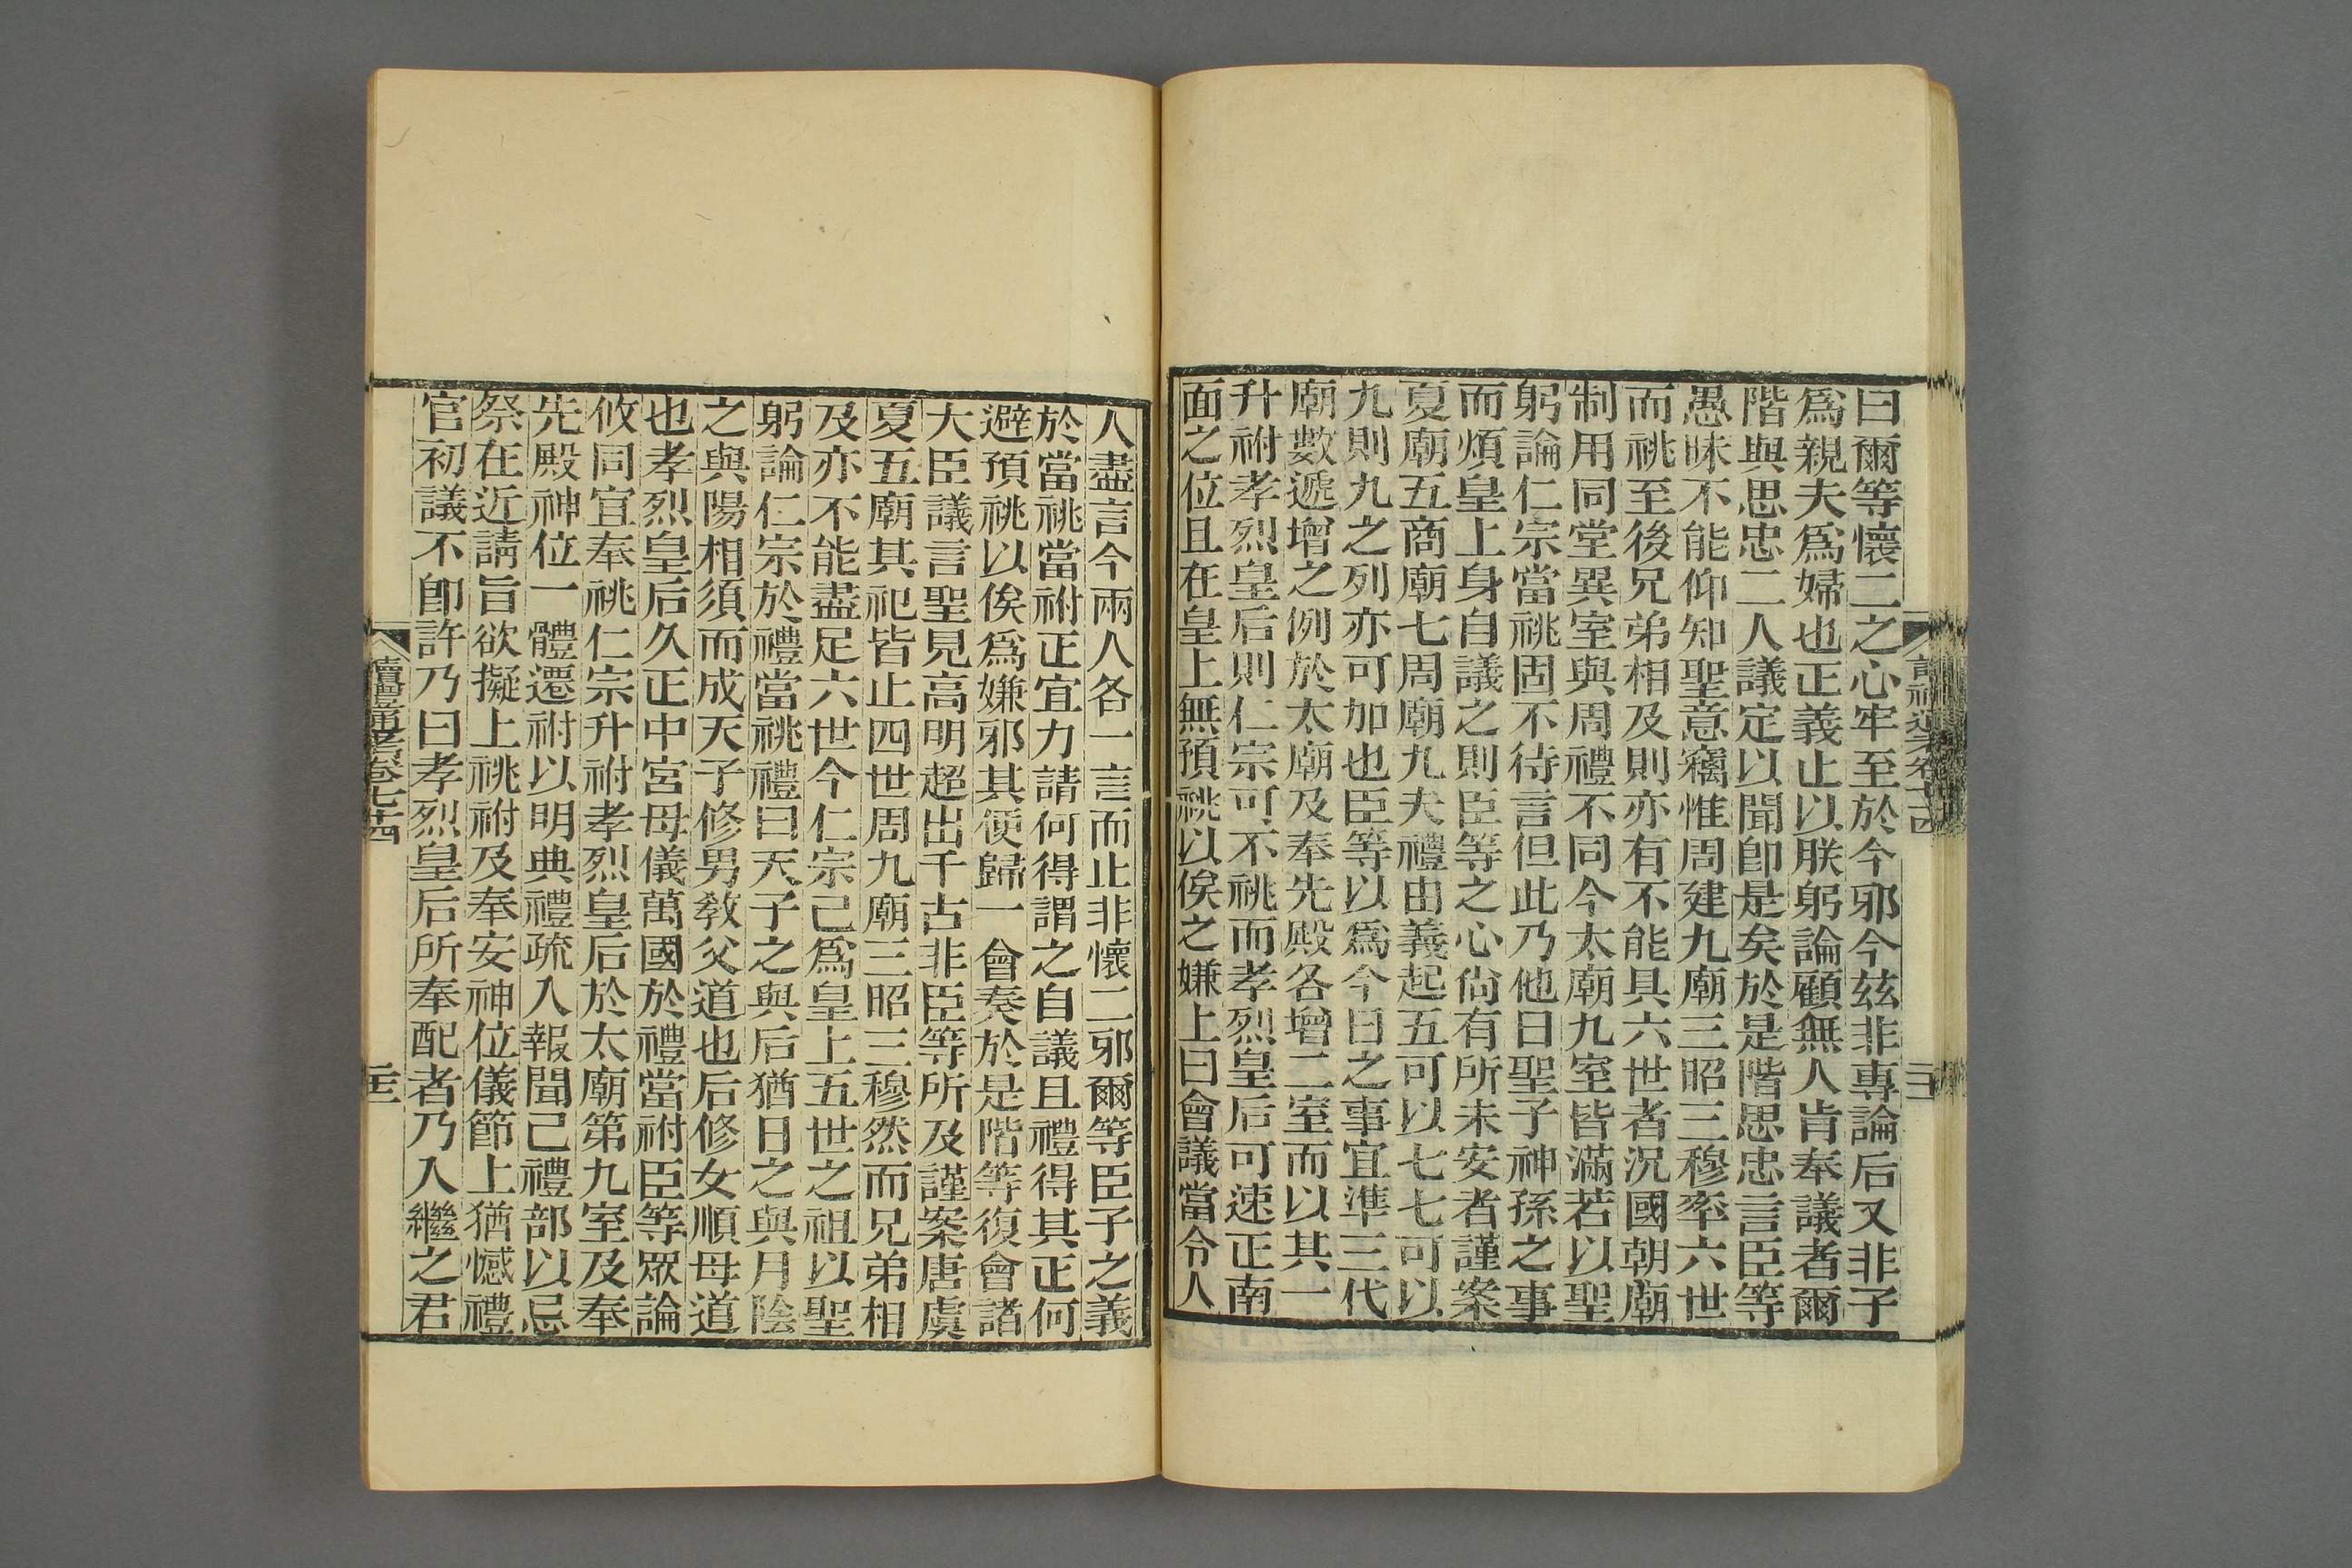 曰爾等懷二之心牢至於今邪今茲非專論后又非子
爲親夫爲婦也正義止以朕躬論顧無人肯奉議者爾
階與思忠二人議定以聞卽是矣於是階思忠言臣等
愚昧不能仰知聖意竊惟周建九廟三昭三穆率六世
而祧至後兄弟相及則亦有不能具六世者況國朝廟
制用同堂異室與周禮不同今太廟九室皆滿若以聖
躬論仁宗當祧固不待言但此乃他日聖子神孫之事
而煩皇上身自議之則臣等之心尙有所未安者謹案
夏廟五商廟七周廟九夫禮由義起五可以七七可以
九則九之列亦可加也臣等以爲今日之事宜準三代
廟數遞增之例於太廟及奉先殿各增二室而以其一
升祔孝烈皇后則仁宗可不祧而孝烈皇后可速正南
面之位且在皇上無預祧以俟之嫌上曰會議當令人
人盡言今兩人各一言而止非懷二邪爾等臣子之義
於當祧當祔正宜力請何得謂之自議且禮得其正何
避預祧以俟爲嫌邪其便歸一會奏於是階等復會諸
大臣議言聖見高明超出千古非臣等所及謹案唐虞
夏五廟其祀皆止四世周九廟三昭三穆然而兄弟相
及亦不能盡足六世今仁宗己爲皇上五世之祖以聖
躬論仁宗於禮當祧禮曰天子之與后猶日之與月陰
之與陽相須而成天子修男敎父道也后修女順母道
也孝烈皇后久正中宮母儀萬國於禮當祔臣等眾論
攸同宜奉祧仁宗升祔孝烈皇后於太廟第九室及奉
先殿神位一體遷祔以明典禮疏入報聞己禮部以忌
祭在近請旨欲擬上祧祔及奉安神位儀節上猶憾禮
官初議不卽許乃曰孝烈皇后所奉配者乃入繼之君
續禮通考卷七十四